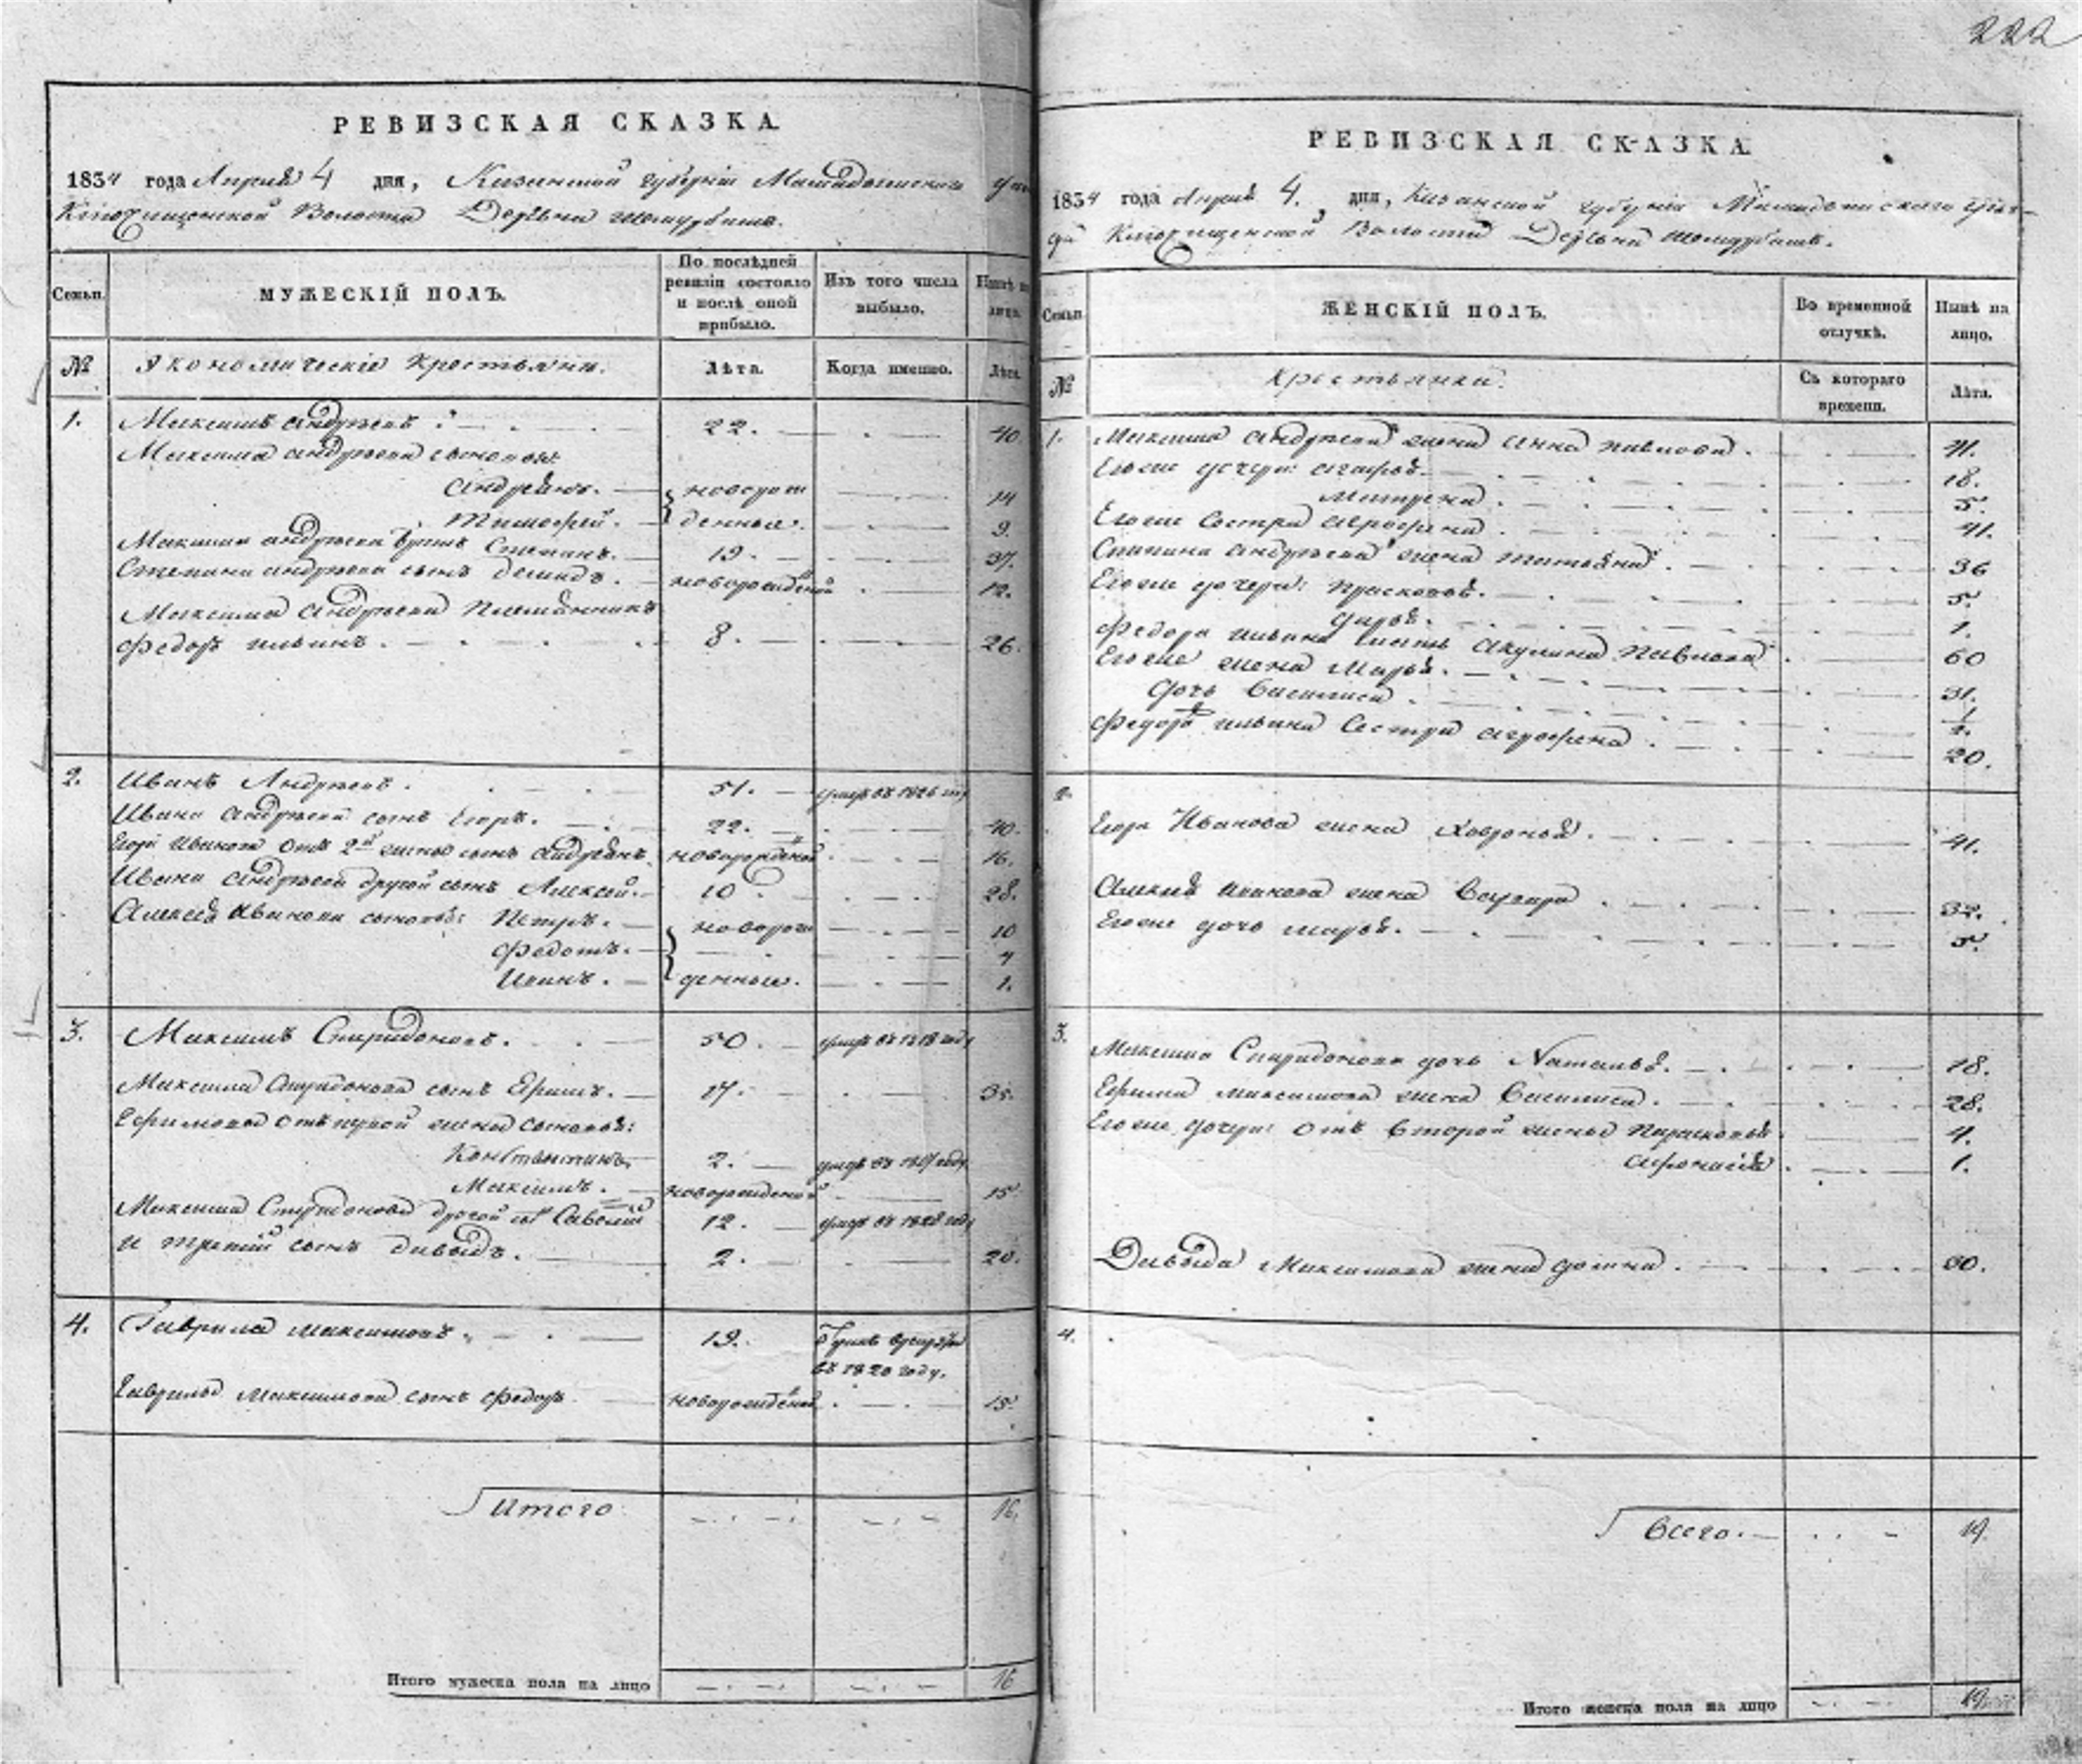 222
РЕВИЗСКАЯ СКАЗКА.
1834 года Апреля 4 дня, Казанской губернии Мамадышского
Волости Деревни
Семьи.
МУЖЕСКІЙ ПОЛЪ.
По послѣдней ревизіи состояло и послѣ оной прибыло.
Изъ того числа выбыло.
Нынѣ на лицо.
№
Экономическіе Крестьяни.
Лѣта.
Когда именно.
Лѣта.
1. Максимъ Андреевъ 22. 40
Максима Андреева сыновья:
Андреянъ. новорож 14
Тимофей. денные. 9
Максима Андреева братъ Степанъ. 19. 37.
Степана Андреева сынъ Демидъ. новорожденой 12.
Максима Андреева Племянникъ
Федоръ Ильинъ. 8. 26.
2. Иванъ Андреевъ. 51. умеръ въ 1826 году
Ивана Андреева сынъ Егоръ. 22. 40.
Егора Иванова отъ 2й жены сынъ Андреянъ новорожденой 16.
Ивана Андреева другой сынъ Алексей. 10 28.
Алексея Иванова сыновья: Петръ. новорож 10
Федотъ. 7
Иванъ. денные. 1.
3. Максимъ Спиридоновъ. 50. умеръ въ 1818 году
Максима Спиридонова сынъ Ефимъ. 17. 35.
Ефимовы отъ первой жены сыновья:
Константинъ 2. умеръ въ году
Максимъ. новорожденой 15
Максима Спиридонова другой сынъ Савелий 12. умеръ въ 1828 году
и третий сынъ Давыдъ. 2. 20.
4. Гаврила Максимовъ 19. въ 1820 году.
Гаврилы Максимова сынъ Федоръ новорожденой 15.
Итого 16.
Итого мужеска пола на лицо 16
РЕВИЗСКАЯ СКАЗКА.
1834 года Апреля 4. дня, Казанской губернии Мамадышского уез-
да Волости Деревни
Семьи.
ЖЕНСКІЙ ПОЛЪ.
Во временной отлучкѣ.
Нынѣ на лицо.
№
Крестьянки.
Съ котораго времени.
Лѣта.
1. Максима Андреева жена Анна Павлова. 41.
Его же дочери: Агафья. 18.
Матрена. 5.
Его же Сестра Агрофена. 41.
Степана Андреева жена Татьяна. 36
Его же дочери: Прасковья. 5.
Дарья. 1.
Федора Ильина мать Акулина Павлова 60
Его же жена Марья. 31.
Дочь Василиса
Федора Ильина Сестра Агрофена 20.
2. Егора Иванова жена Ховронья. 41.
Алексея Иванова жена Варвара 32.
Его же дочь Марья. 5.
3. Максима Спиридонова дочь Наталья. 18.
Ефима Максимова жена Василиса. 28.
Его же дочери отъ второй жены Парасковья 4.
Афонасия 1.
Давыда Максимова жена Домна. 30.
4.
Всего. 19.
Итого женска пола на лицо 19